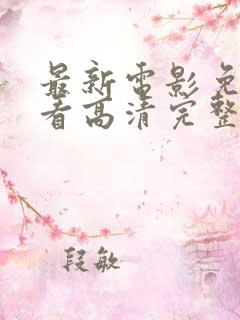 最新電影免
看高清完整
段敏